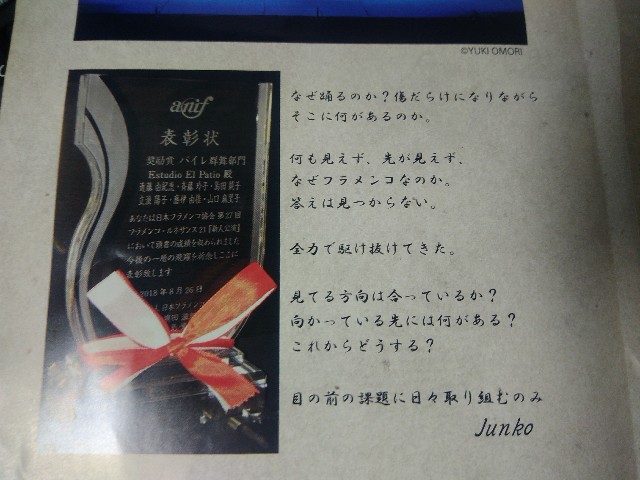 ©YUKI OMORI
anif
表彰状
奨励賞 バイレ群舞部門
Estudio El Patio 殿
あなたは日本フラメンコ協会 第27回
フラメンコ・ルネサンス21「新人公演」
において優秀の成績を収められました
今後の一層の飛躍を祈念しここに
表彰致します
2018年8月26日
人 日本フラメンコ
なぜ踊るのか?傷だらけになりながら
そこに何があるのか。
何も見えず、先が見えず、
なぜフラメンコなのか。
答えは見つからない。
全力で駆け抜けてきた。
見てる方向は合っているか?
向かっている先には何がある?
これからどうする?
目の前の課題に日々取り組むのみ
Junko